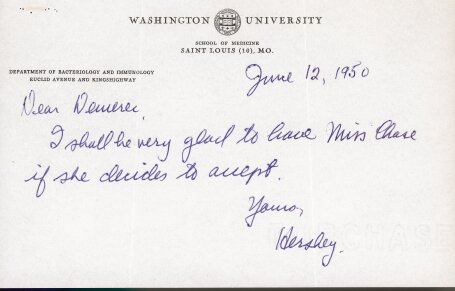 WASHINGTON UNIVERSITY
SCHOOL OF MEDICINE
SAINT LOUIS (10), MO.
DEPARTMENT OF BACTERIOLOGY AND IMMUNOLOGY
EUCLID AVENUE AND KINGSHIGHWAY
June 12, 1950
Dear Demerec,
I shall be very glad to have Miss Chase
if she decides to accept.
Yours,
Hershey.